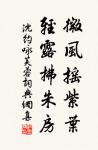 微風搖紫葉
輕露拂朱房
沈約詠芙蓉詞典網喜